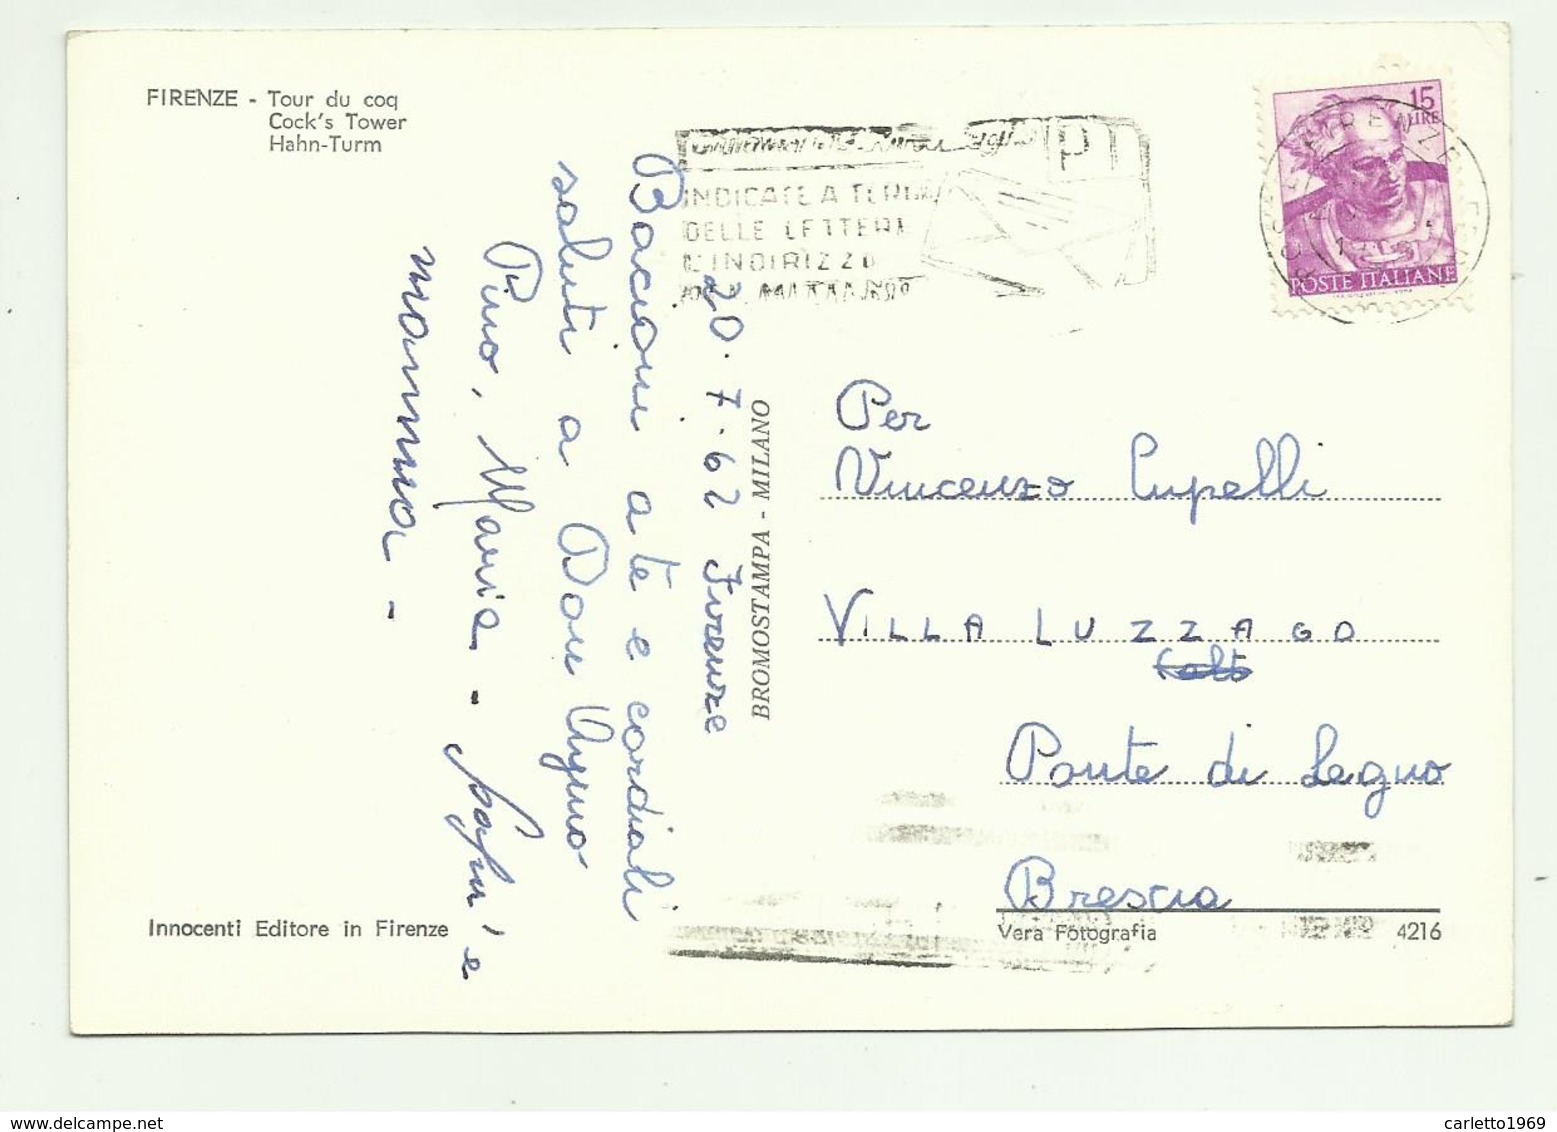 FIRENZE - Tour du coq
Cock's Tower
Hahn-Turm
20.7.62 Firenze
Bacioni a te e cordiali
saluti a Don
Pino, Maria - e
mamma -
BROMOSTAMPA - MILANO
INDICATE A TERGO
DELLE LETTERE
L'INDIRIZZO
DEL MITTENTE
PT
15
LIRE
POSTE ITALIANE
Per
Vincenzo Cupelli
VILLA LUZZAGO
Ponte di Legno
Brescia
Innocenti Editore in Firenze
Vera Fotografia
4216
carletto1969